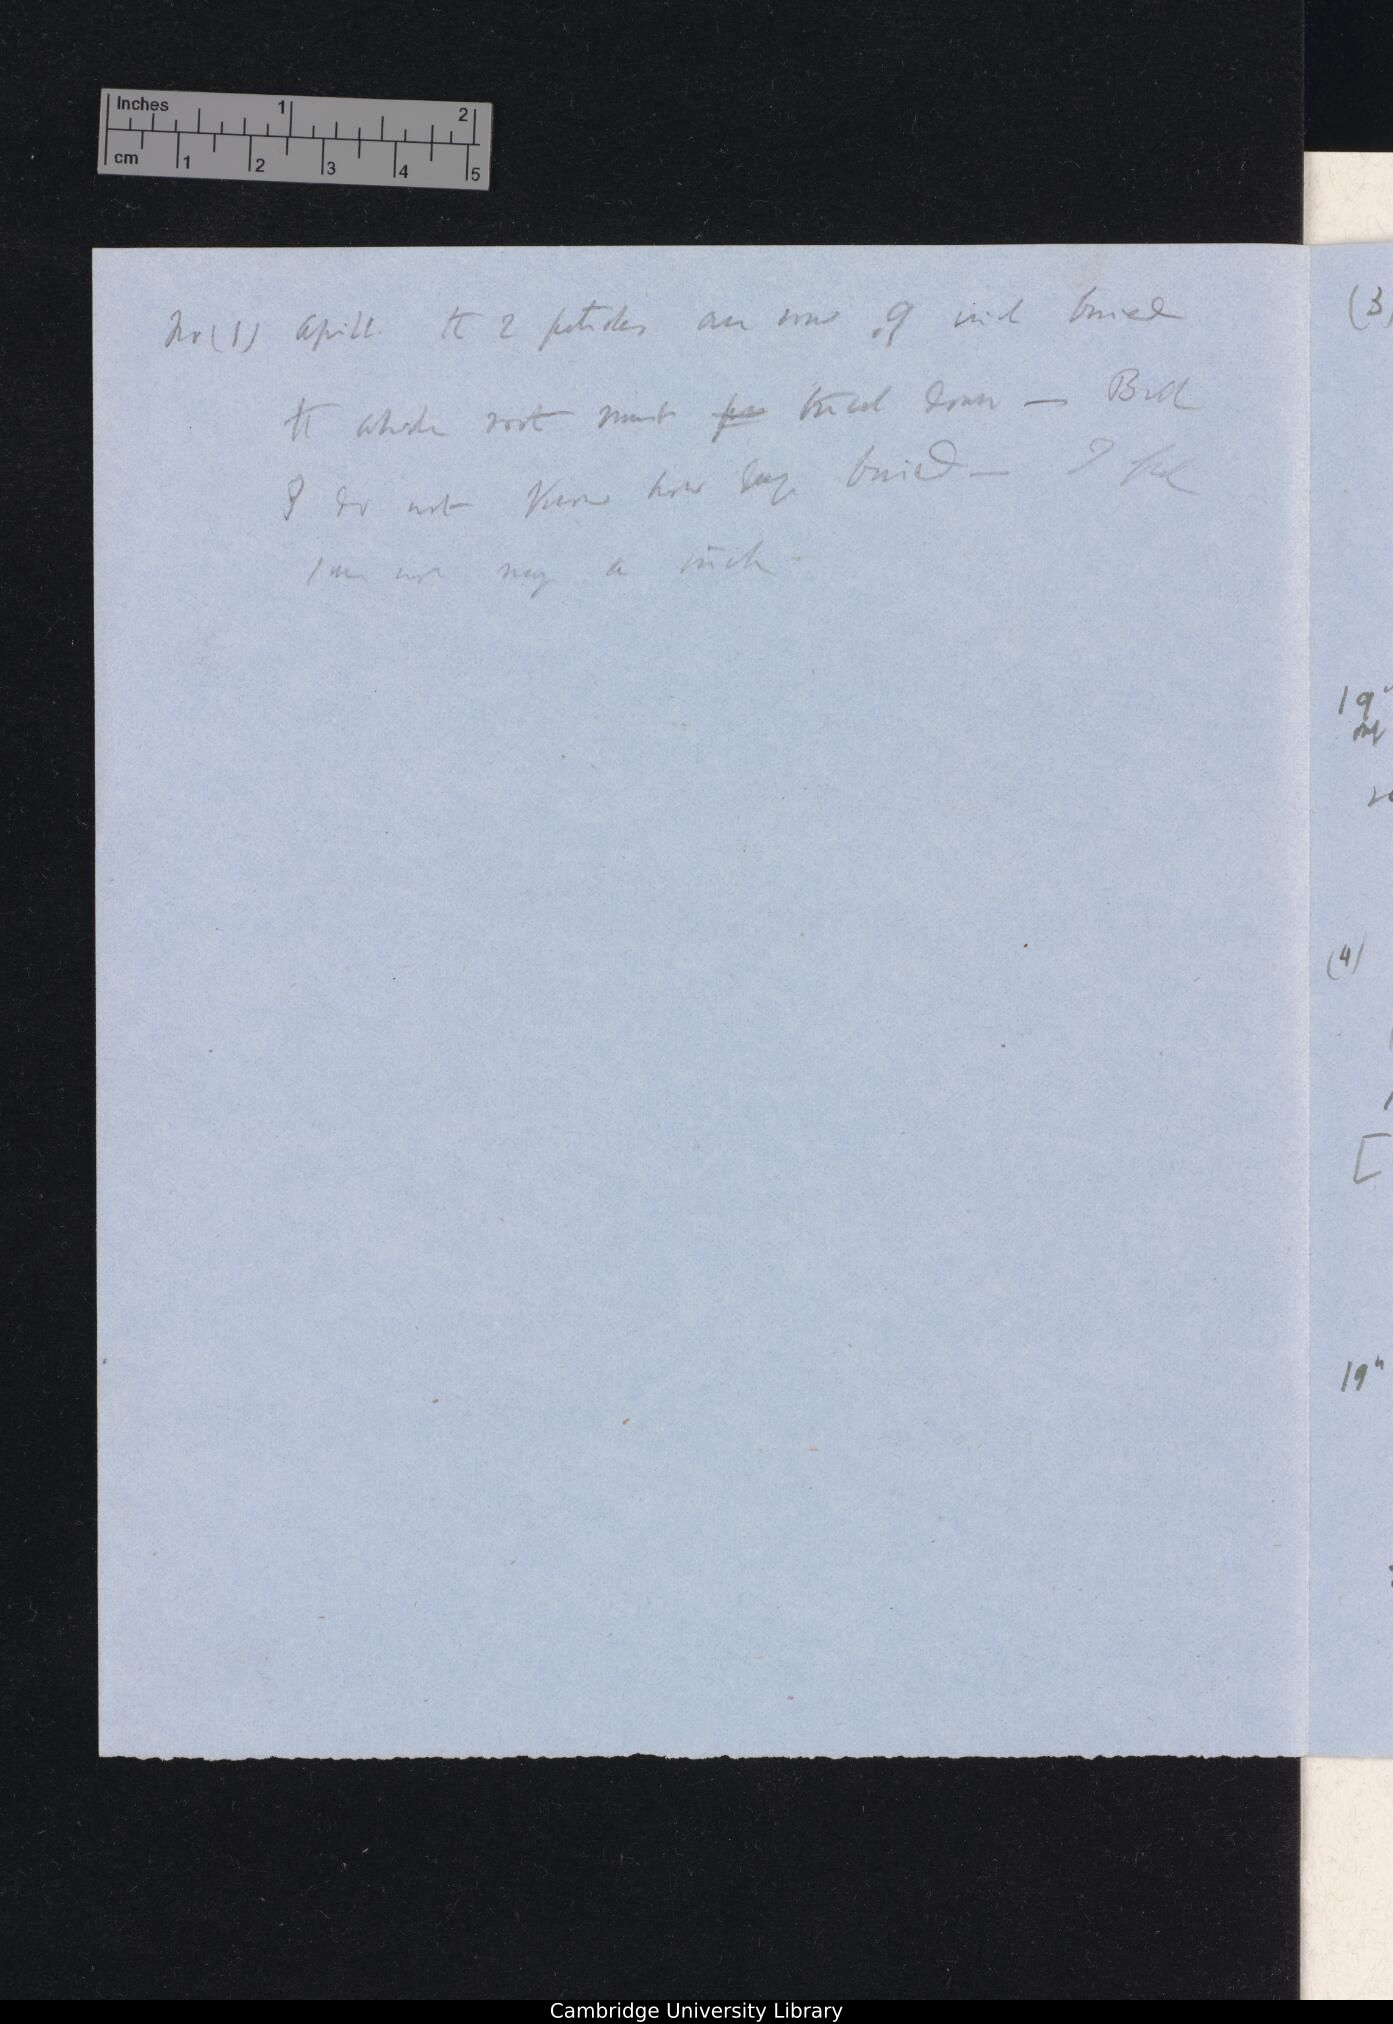 Inches 1 2
cm 1 2 3 4 5
No (1) April. the 2 petioles are now .9 inch buried
the whole root must buried down — But
I do not know how deep buried — I feel
sure not nearly a inch.
(3)
19
(4)
[
19"
Cambridge University Library